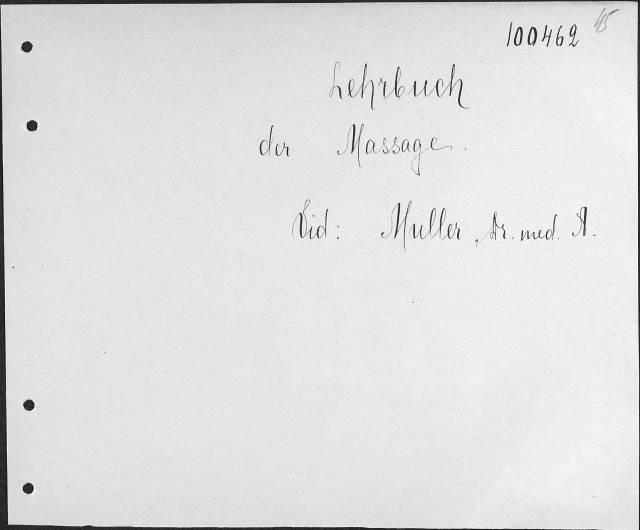 45
100462
Lehrbuch
der Massage.
Vid: Muller, Dr. med. A.